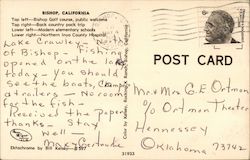 BISHOP, CALIFORNIA
Top left—Bishop Golf course, public welcome
Top right—Back country pack trip
Lower left—Modern elementary schools
Lower right—Northern Inyo County Hospital
Lake Crowley - North
of Bishop - Fishing
opened on the lake
today - you should
see the boats, campers
trailers - No room
for the fish -
Received the Paper
thanks - Stay
Well -
Max & Gertrude
Ektachrome by Bill
POST CARD
Mr & Mrs G. E. Ortman
c/o Ortman Theater
Hennessey
Oklahoma 73742
31933
6¢